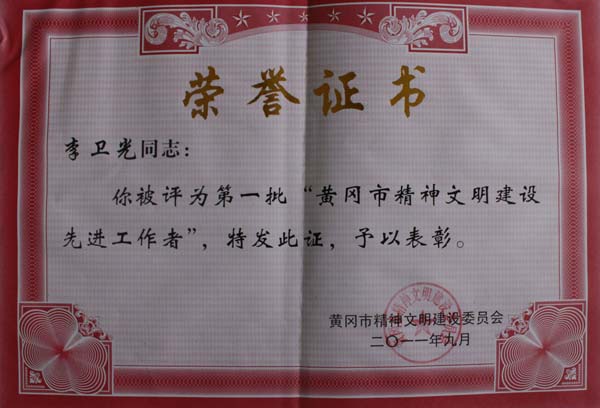 荣誉证书
李卫光同志：
你被评为第一批“黄冈市精神文明建设
先进工作者”，特发此证，予以表彰。
黄冈市精神文明建设委员会
二〇一一年九月